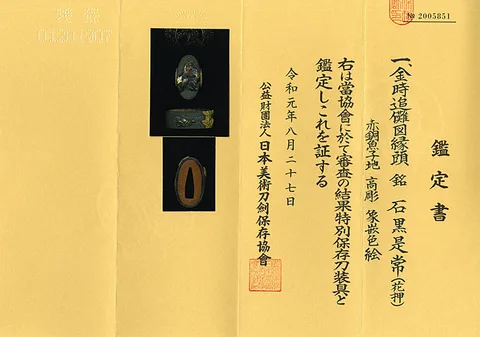 № 2005851
鑑定書
一、金時追儺図縁頭 銘 石黒是常(花押)
赤銅魚子地 高彫 象嵌色絵
右は當協會に於て審査の結果特別保存刀装具と
鑑定しこれを証する
令和元年八月二十七日
公益財團法人 日本美術刀劍保存協會